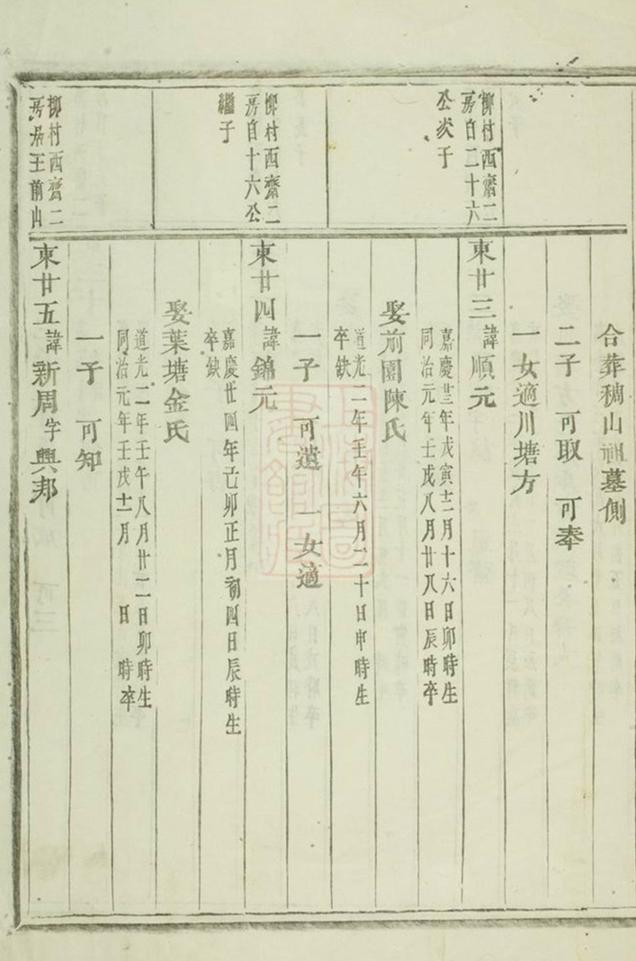 合葬稠山祖墓側
二子 可取 可奉
一女適川塘方
柳村西齋二
房自二十六
公次子
東廿三諱順元
嘉慶廿三年戊寅十二月十六日卯時生
同治元年壬戌八月廿八日辰時卒
娶前園陳氏
道光二年壬午六月二十日申時生
卒缺
一子 可遠 一女適
柳村西齋二
房自十六公
繼子
東廿四諱錦元
嘉慶廿四年己卯正月初四日辰時生
卒缺
娶葉塘金氏
道光二年壬午八月廿二日卯時生
同治元年壬戌十一月 日 時卒
一子 可知
柳村西齋二
房居王前山
東廿五諱新周字興邦